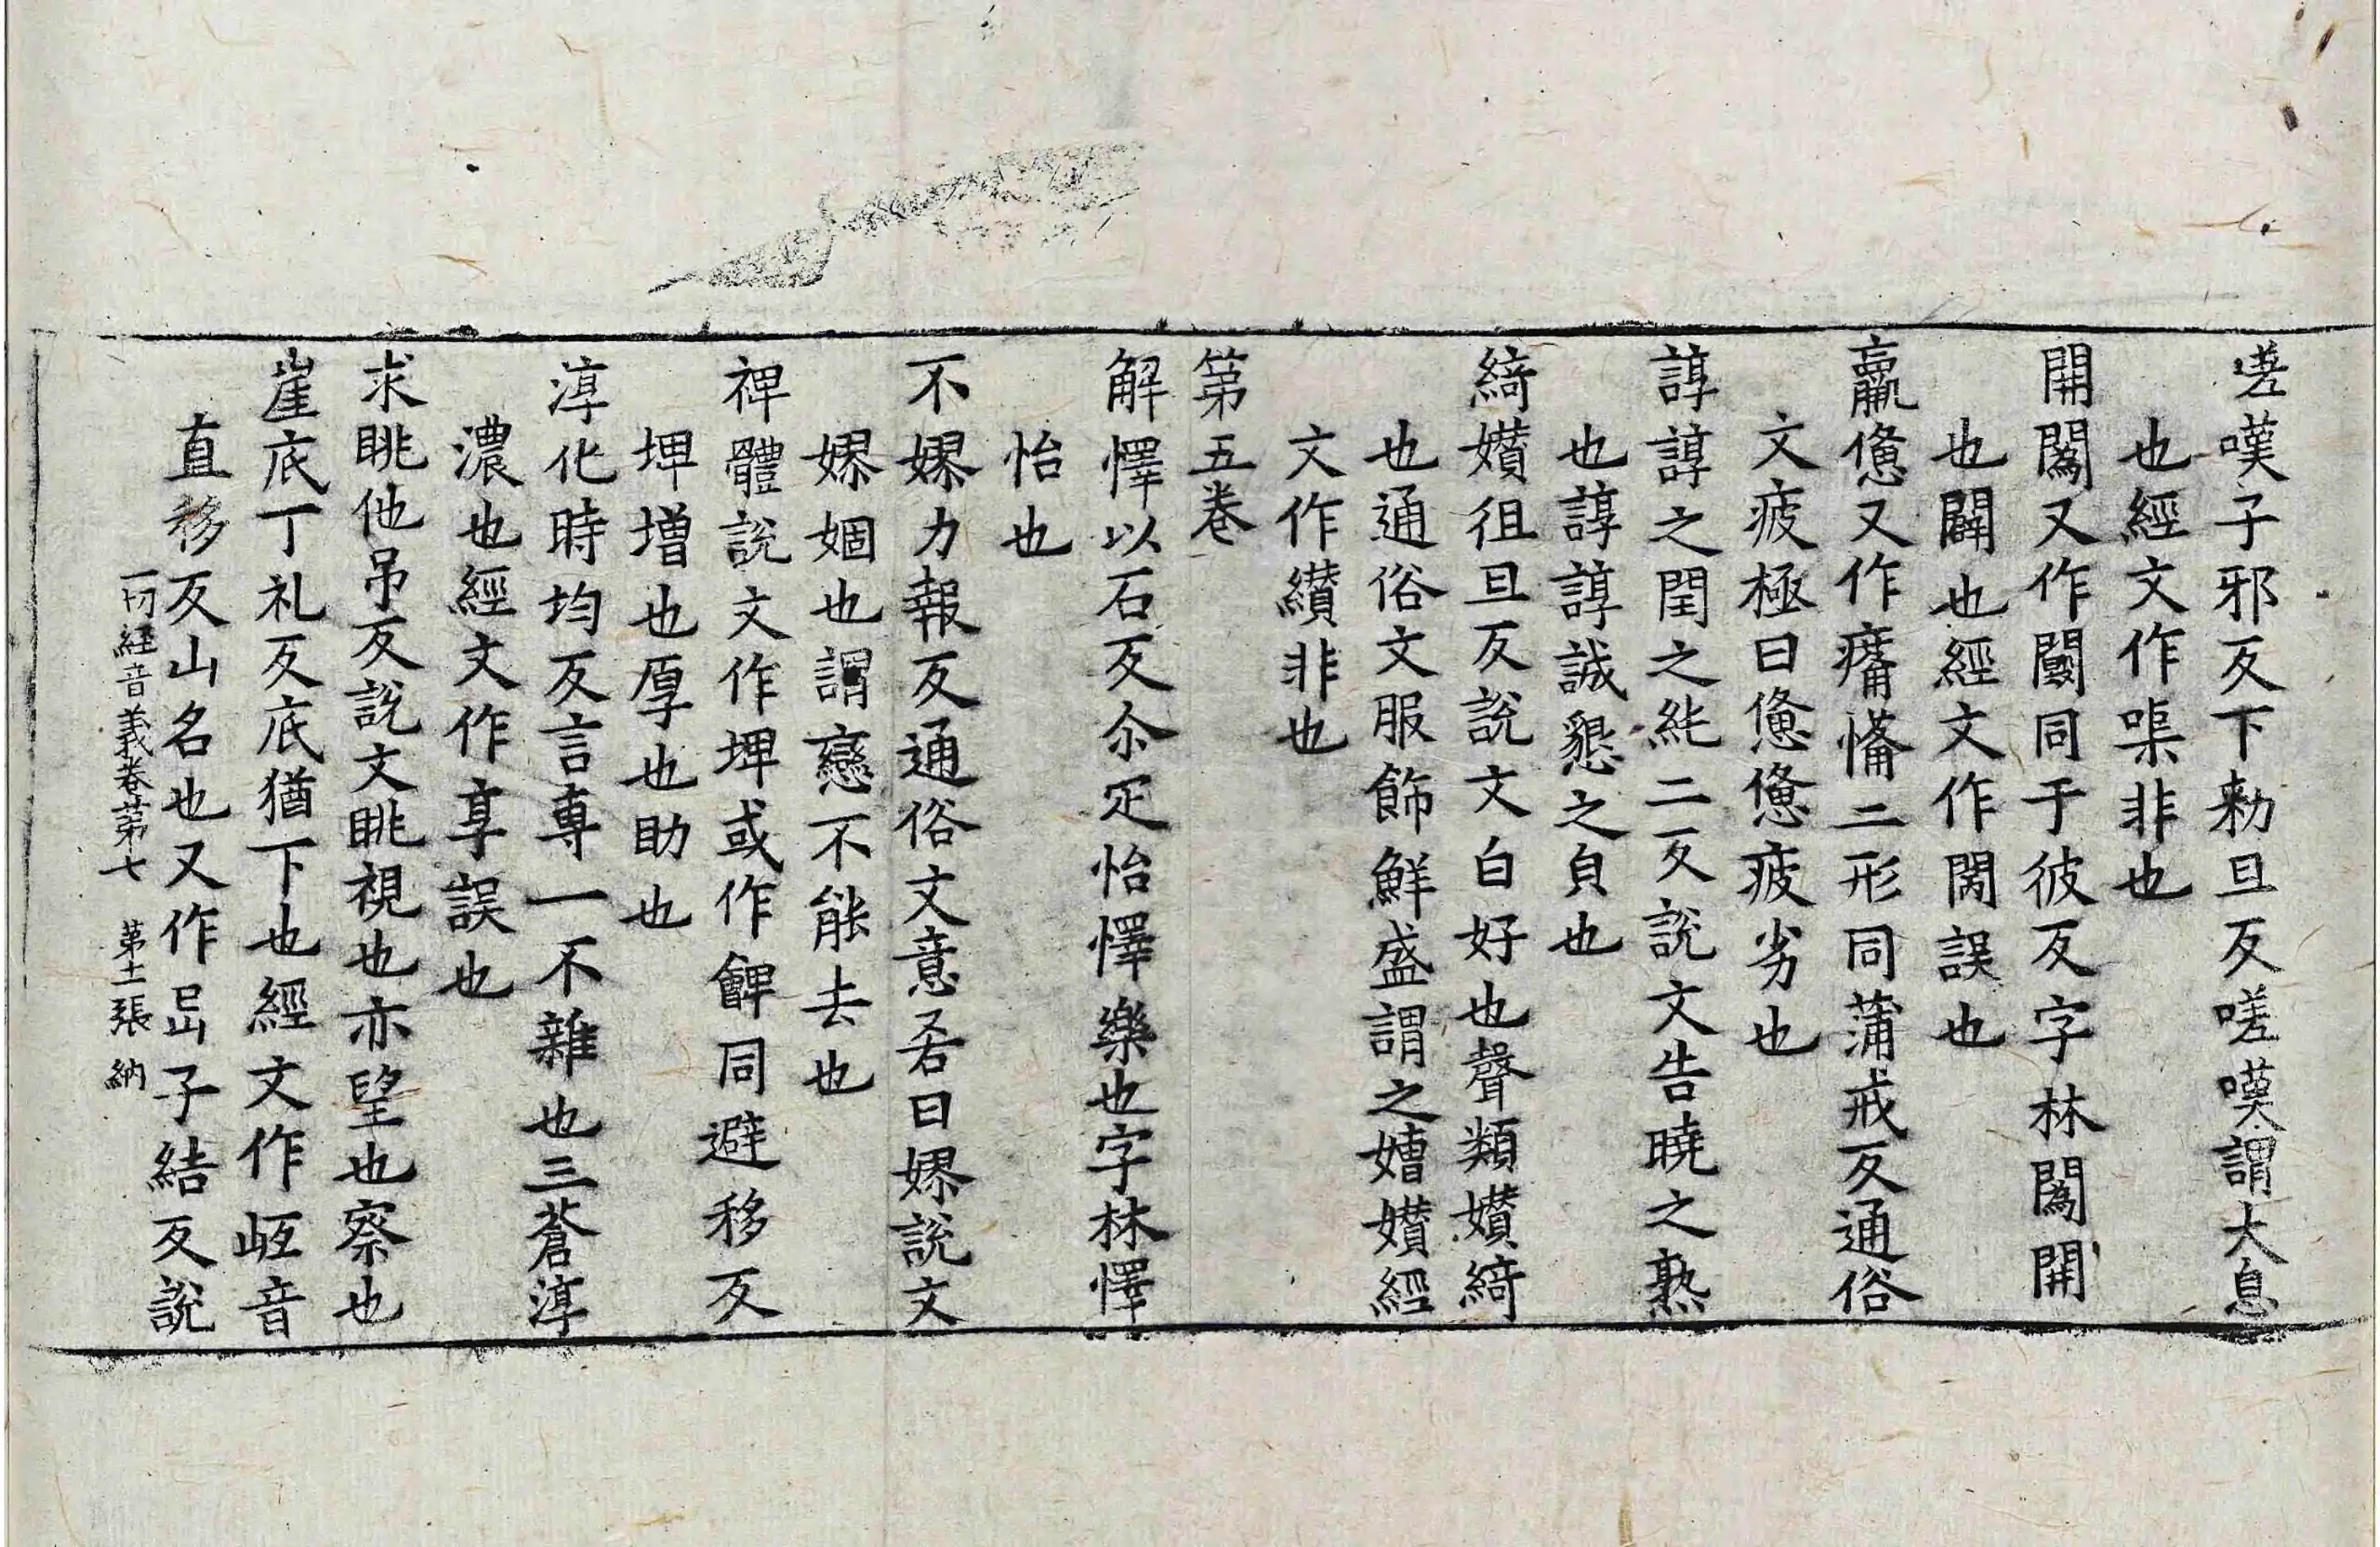 嗟嘆子邪反下勑旦反嗟嘆謂大息
也經文作㗖非也
開闔又作闠同于彼反字林闔開
也闢也經文作閑誤也
羸憊又作𤷄㥶二形同蒲戒反通俗
文疲極曰憊憊疲劣也
諄諄之閏之紽二反說文告曉之熟
也諄諄誠懇之皃也
綺嬻徂旦反說文白好也聲類嬻綺
也通俗文服飾鮮盛謂之嬻經
文作纘非也
第五卷
解懌以石反尒疋怡懌樂也字林懌
怡也
不嫪力報反通俗文意吝曰嫪說文
嫪婟也謂戀不能去也
裨體說文作埤或作𩜁同避移反
埤增也厚也助也
淳化時均反言專一不雜也三蒼淳
濃也經文作享誤也
求眺他吊反說文眺視也亦望也察也
崖底丁礼反底猶下也經文作岻音
直移反山名也又作㠱子結反說
一切經音義卷第七 第十一張 納